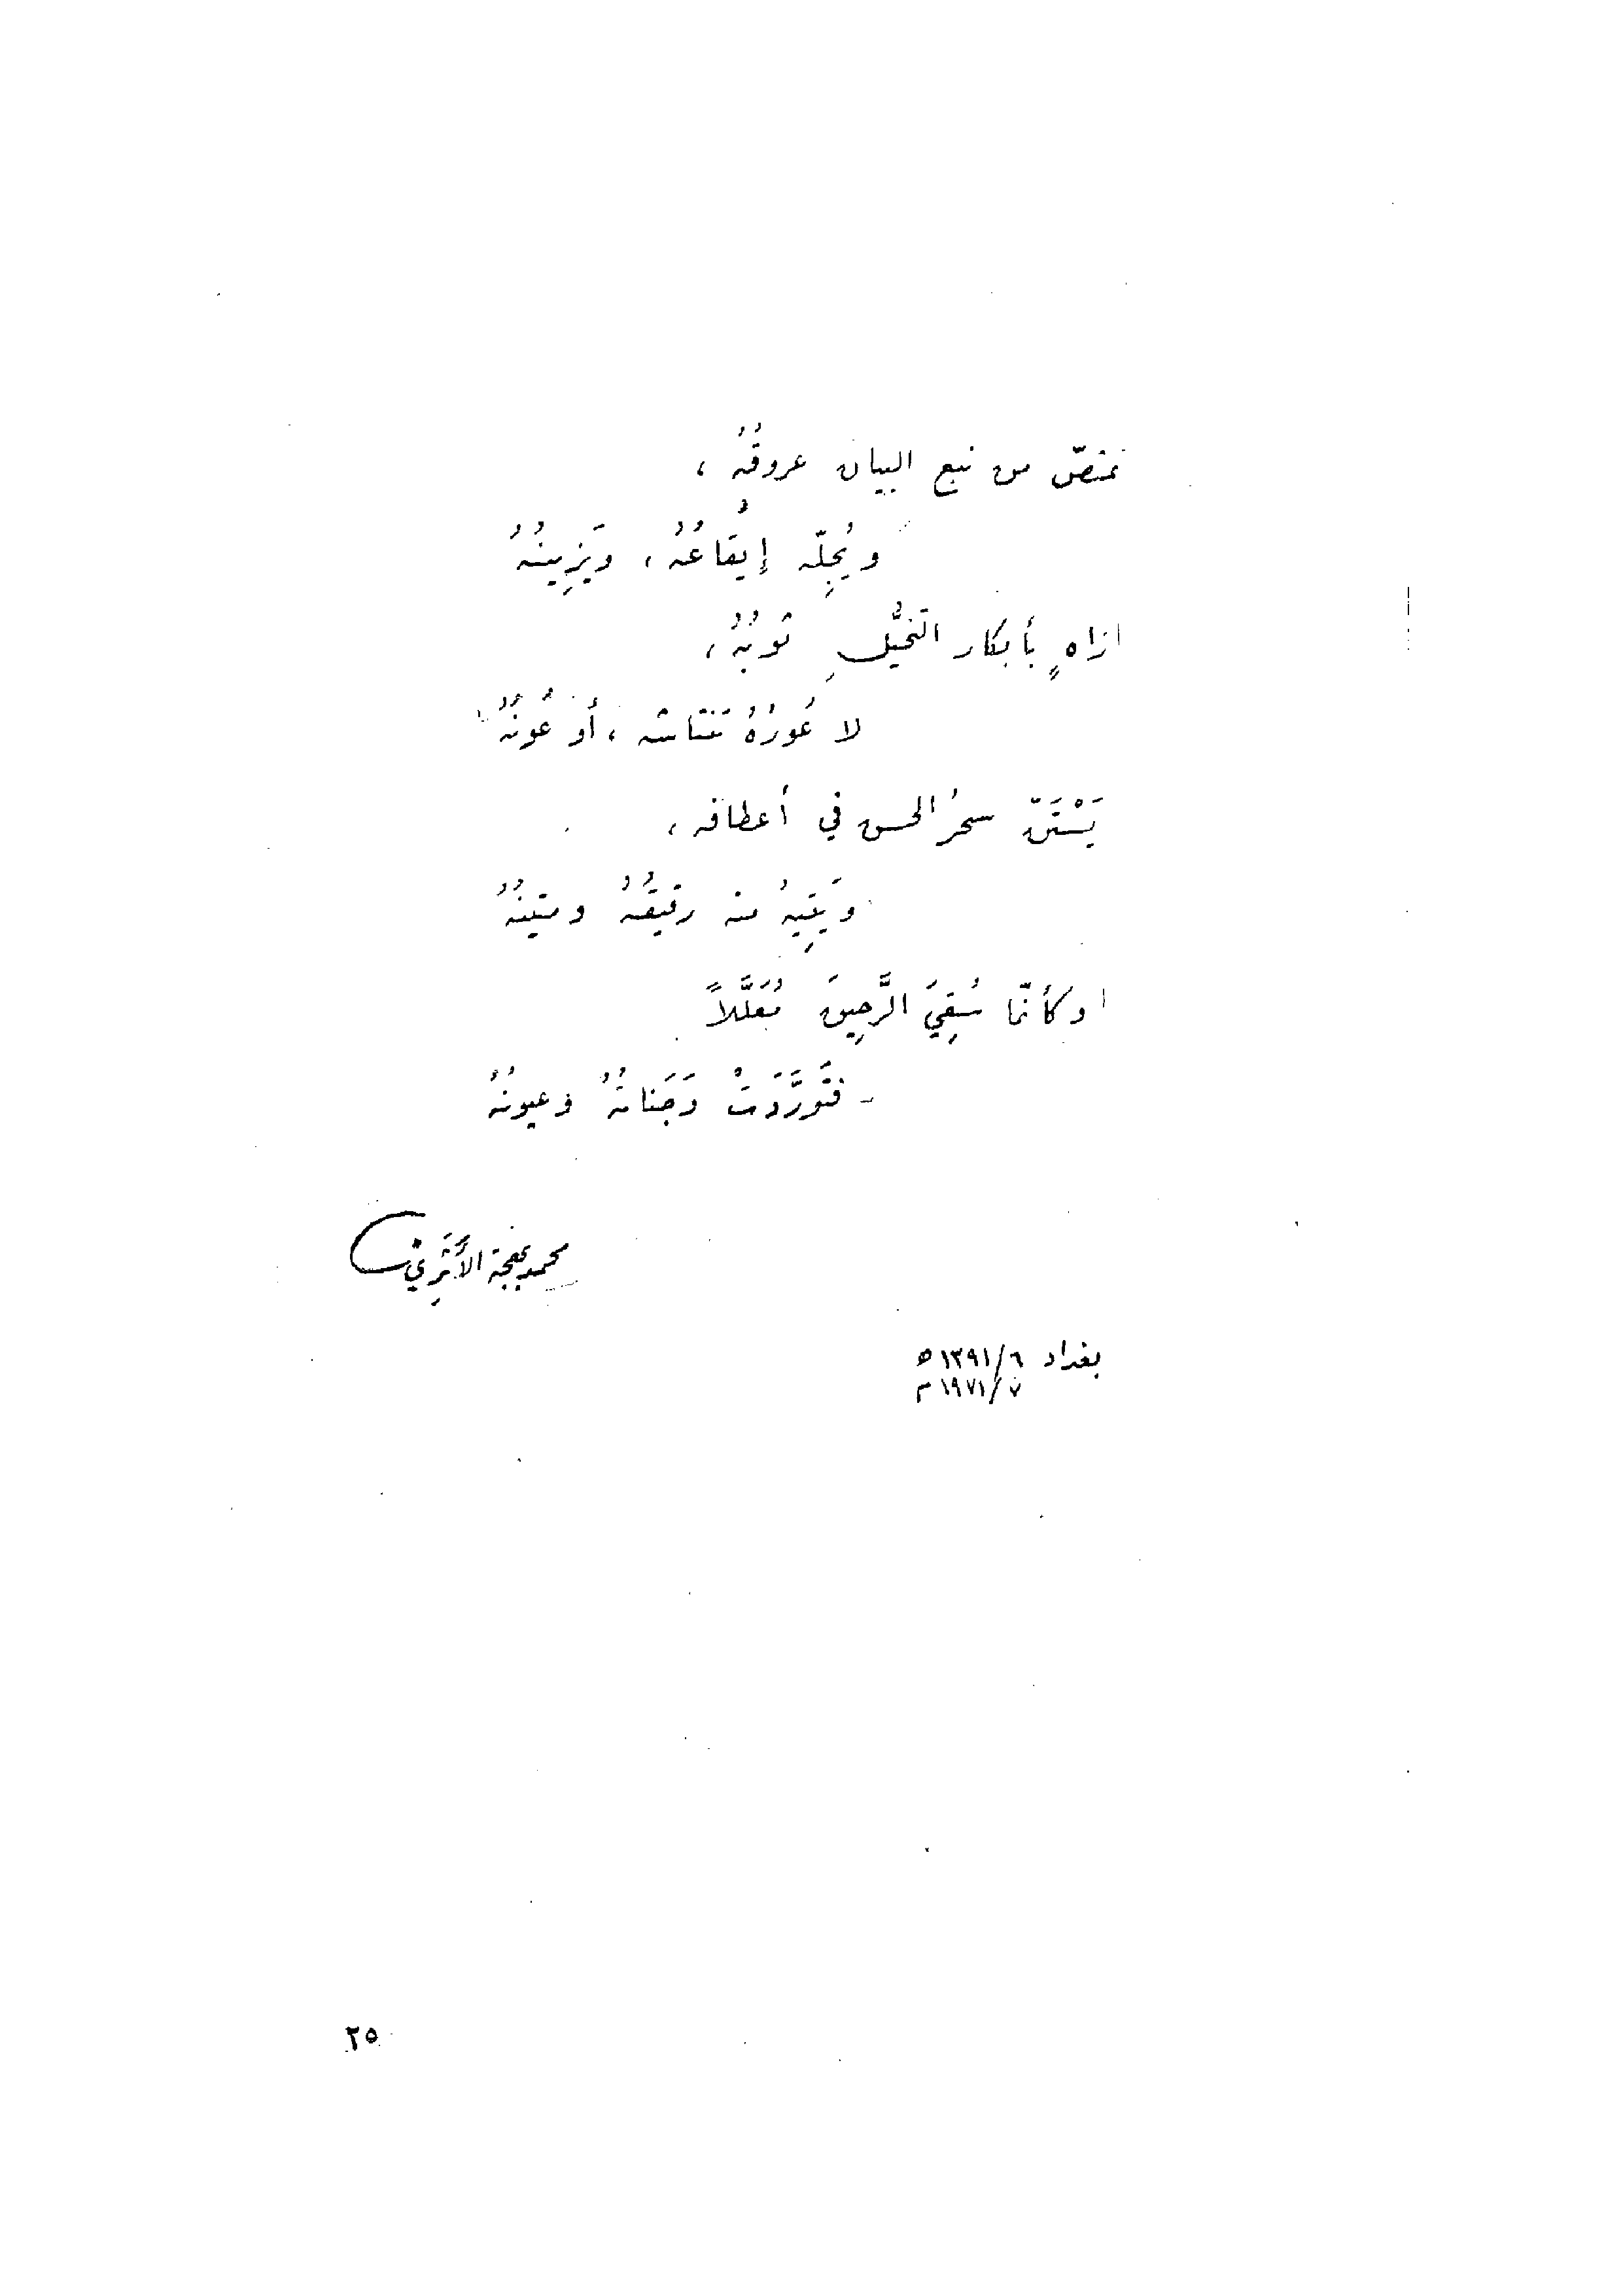 تمتصّ من نبع البيان عروقُهُ ،
ويُجِلّه إيقاعُهُ ، ويَزِينُهُ
زاهٍ بأبكار التخيُّلِ ثوبُهُ ،
لا عُورُهُ تَنتاشه ، أو عُونُهُ
يَسْتَنّ سحرُ الحسن في أعطافه ،
ويَتِيهُ منه رقيقُهُ ومتينُهُ
وكأنّما سُقِيَ الرَّحِيقَ مُعَلَّلاً
فتَورَّدَتْ وَجَناتُهُ وعيونُهُ
محمد بهجة الأَثَرِي
بغداد ٦/١٣٩١ ه
٧/١٩٧١ م
٢٥